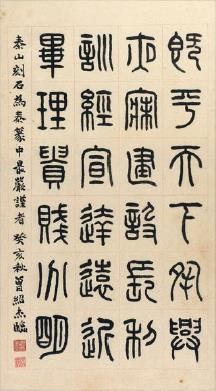 既平天下夙興
夜寐建設長利
訓經宣達遠近
畢理貴賤分明
泰山刻石為秦篆中最嚴謹者癸亥秋曾紹杰臨